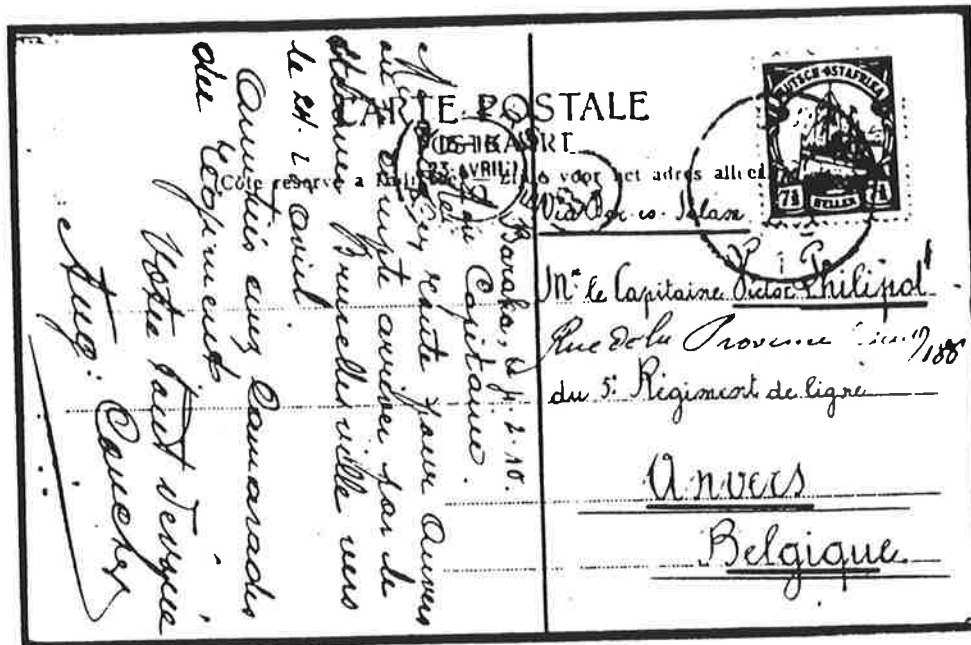 CARTE POSTALE
POSTKAART
Côté réservé à
Zijde voor het adres alleen
15-16
23 AVRIL
DEUTSCH-OSTAFRIKA
7½ 7½
HELLER
Via Dar-es-Salam
Mr le Capitaine Victor Philipot
Rue de la Province 188
du 5e Régiment de ligne
Anvers
Belgique
Baraka, le 4.2.10.
Mon Capitaine.
en route pour Anvers
où compte arriver par le
steamer Bruxellesville vers
le 24. Avril
Amitiés aux Camarades
du Régiment
Votre tout dévoué
Aug: